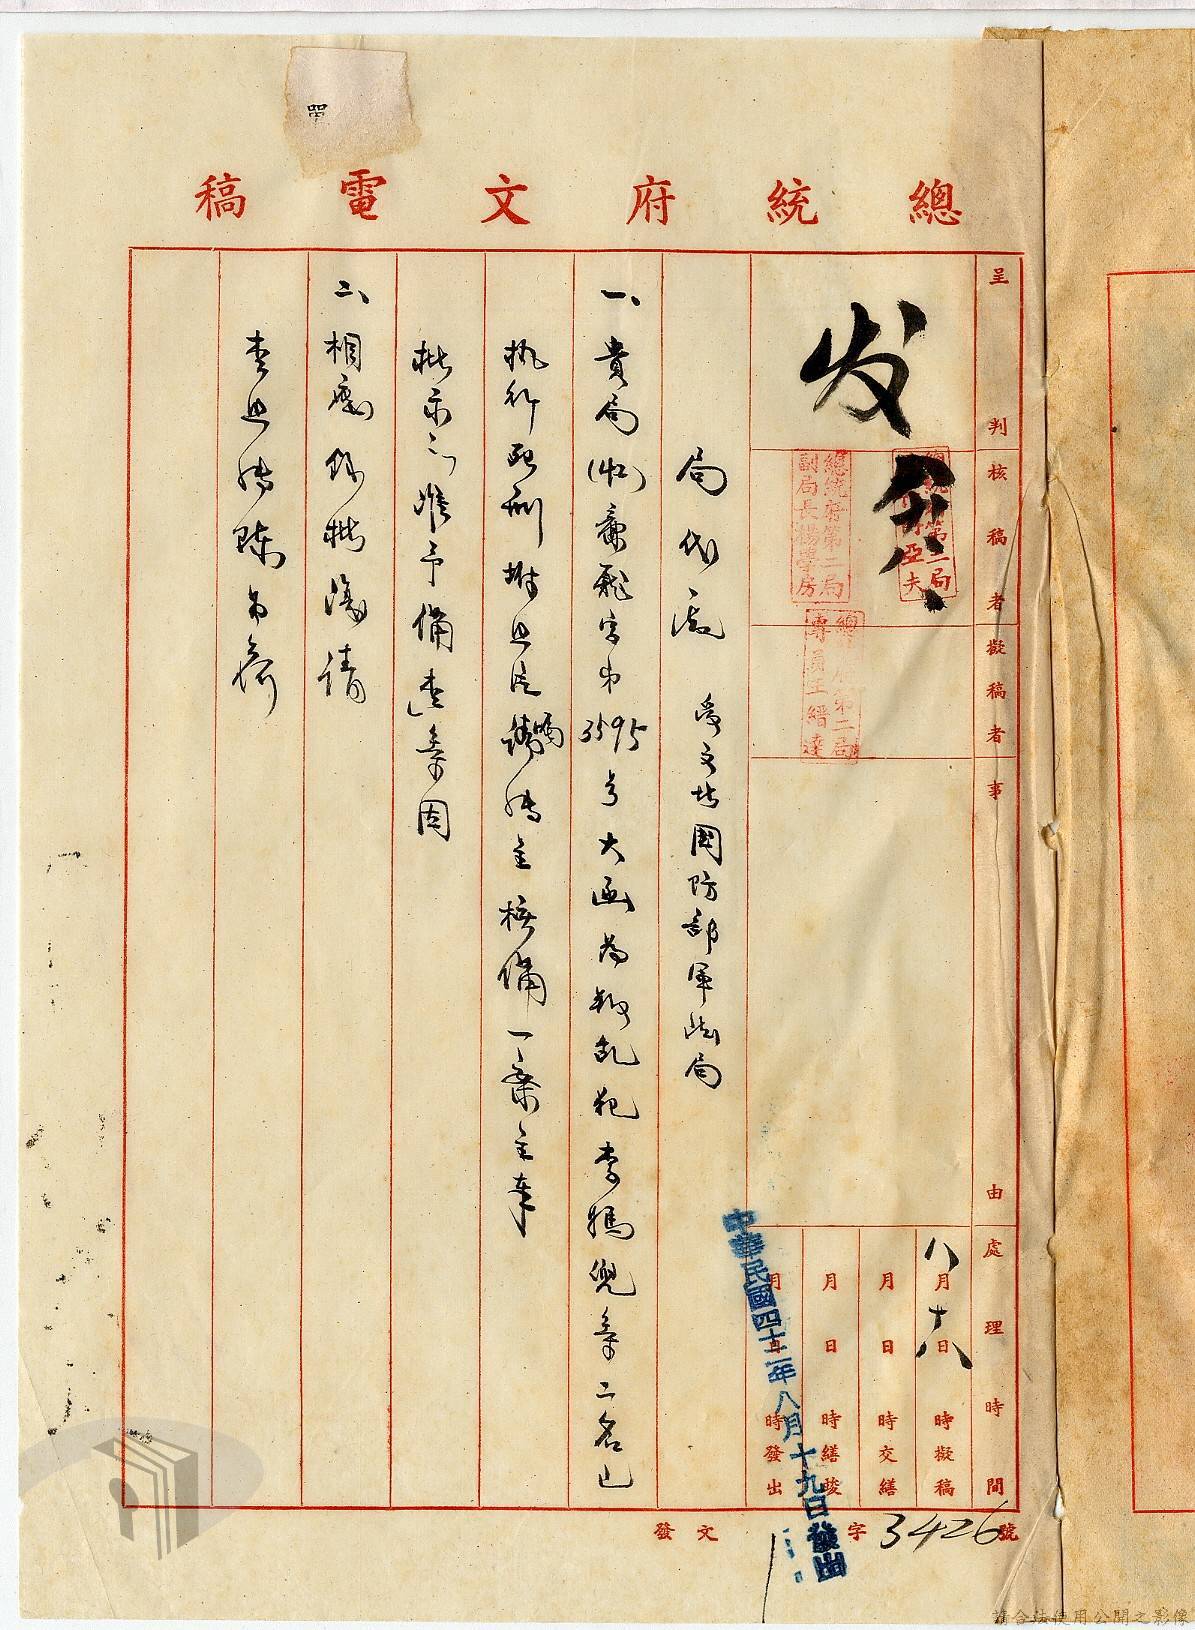 總統府文電稿
呈判
核稿者
擬稿者
事由
處理時間
发
總統府第二局
副局長楊學房
總統府第二局
專員王縉達
八月十八日時擬稿
月日時交繕
月日時繕竣
月日時發出
中華民國四十二年八月十九日發出
局代電 受文者國防部軍法局
一、貴局(42)廉龍字第3595号大函為叛乱犯李媽兜等二名已
執行死刑附照片請轉呈核備一案呈奉
批示「准予備查」等因
二、相應錄批復請
查照轉陳為荷
發文 字3426號
請合法使用公開之影像